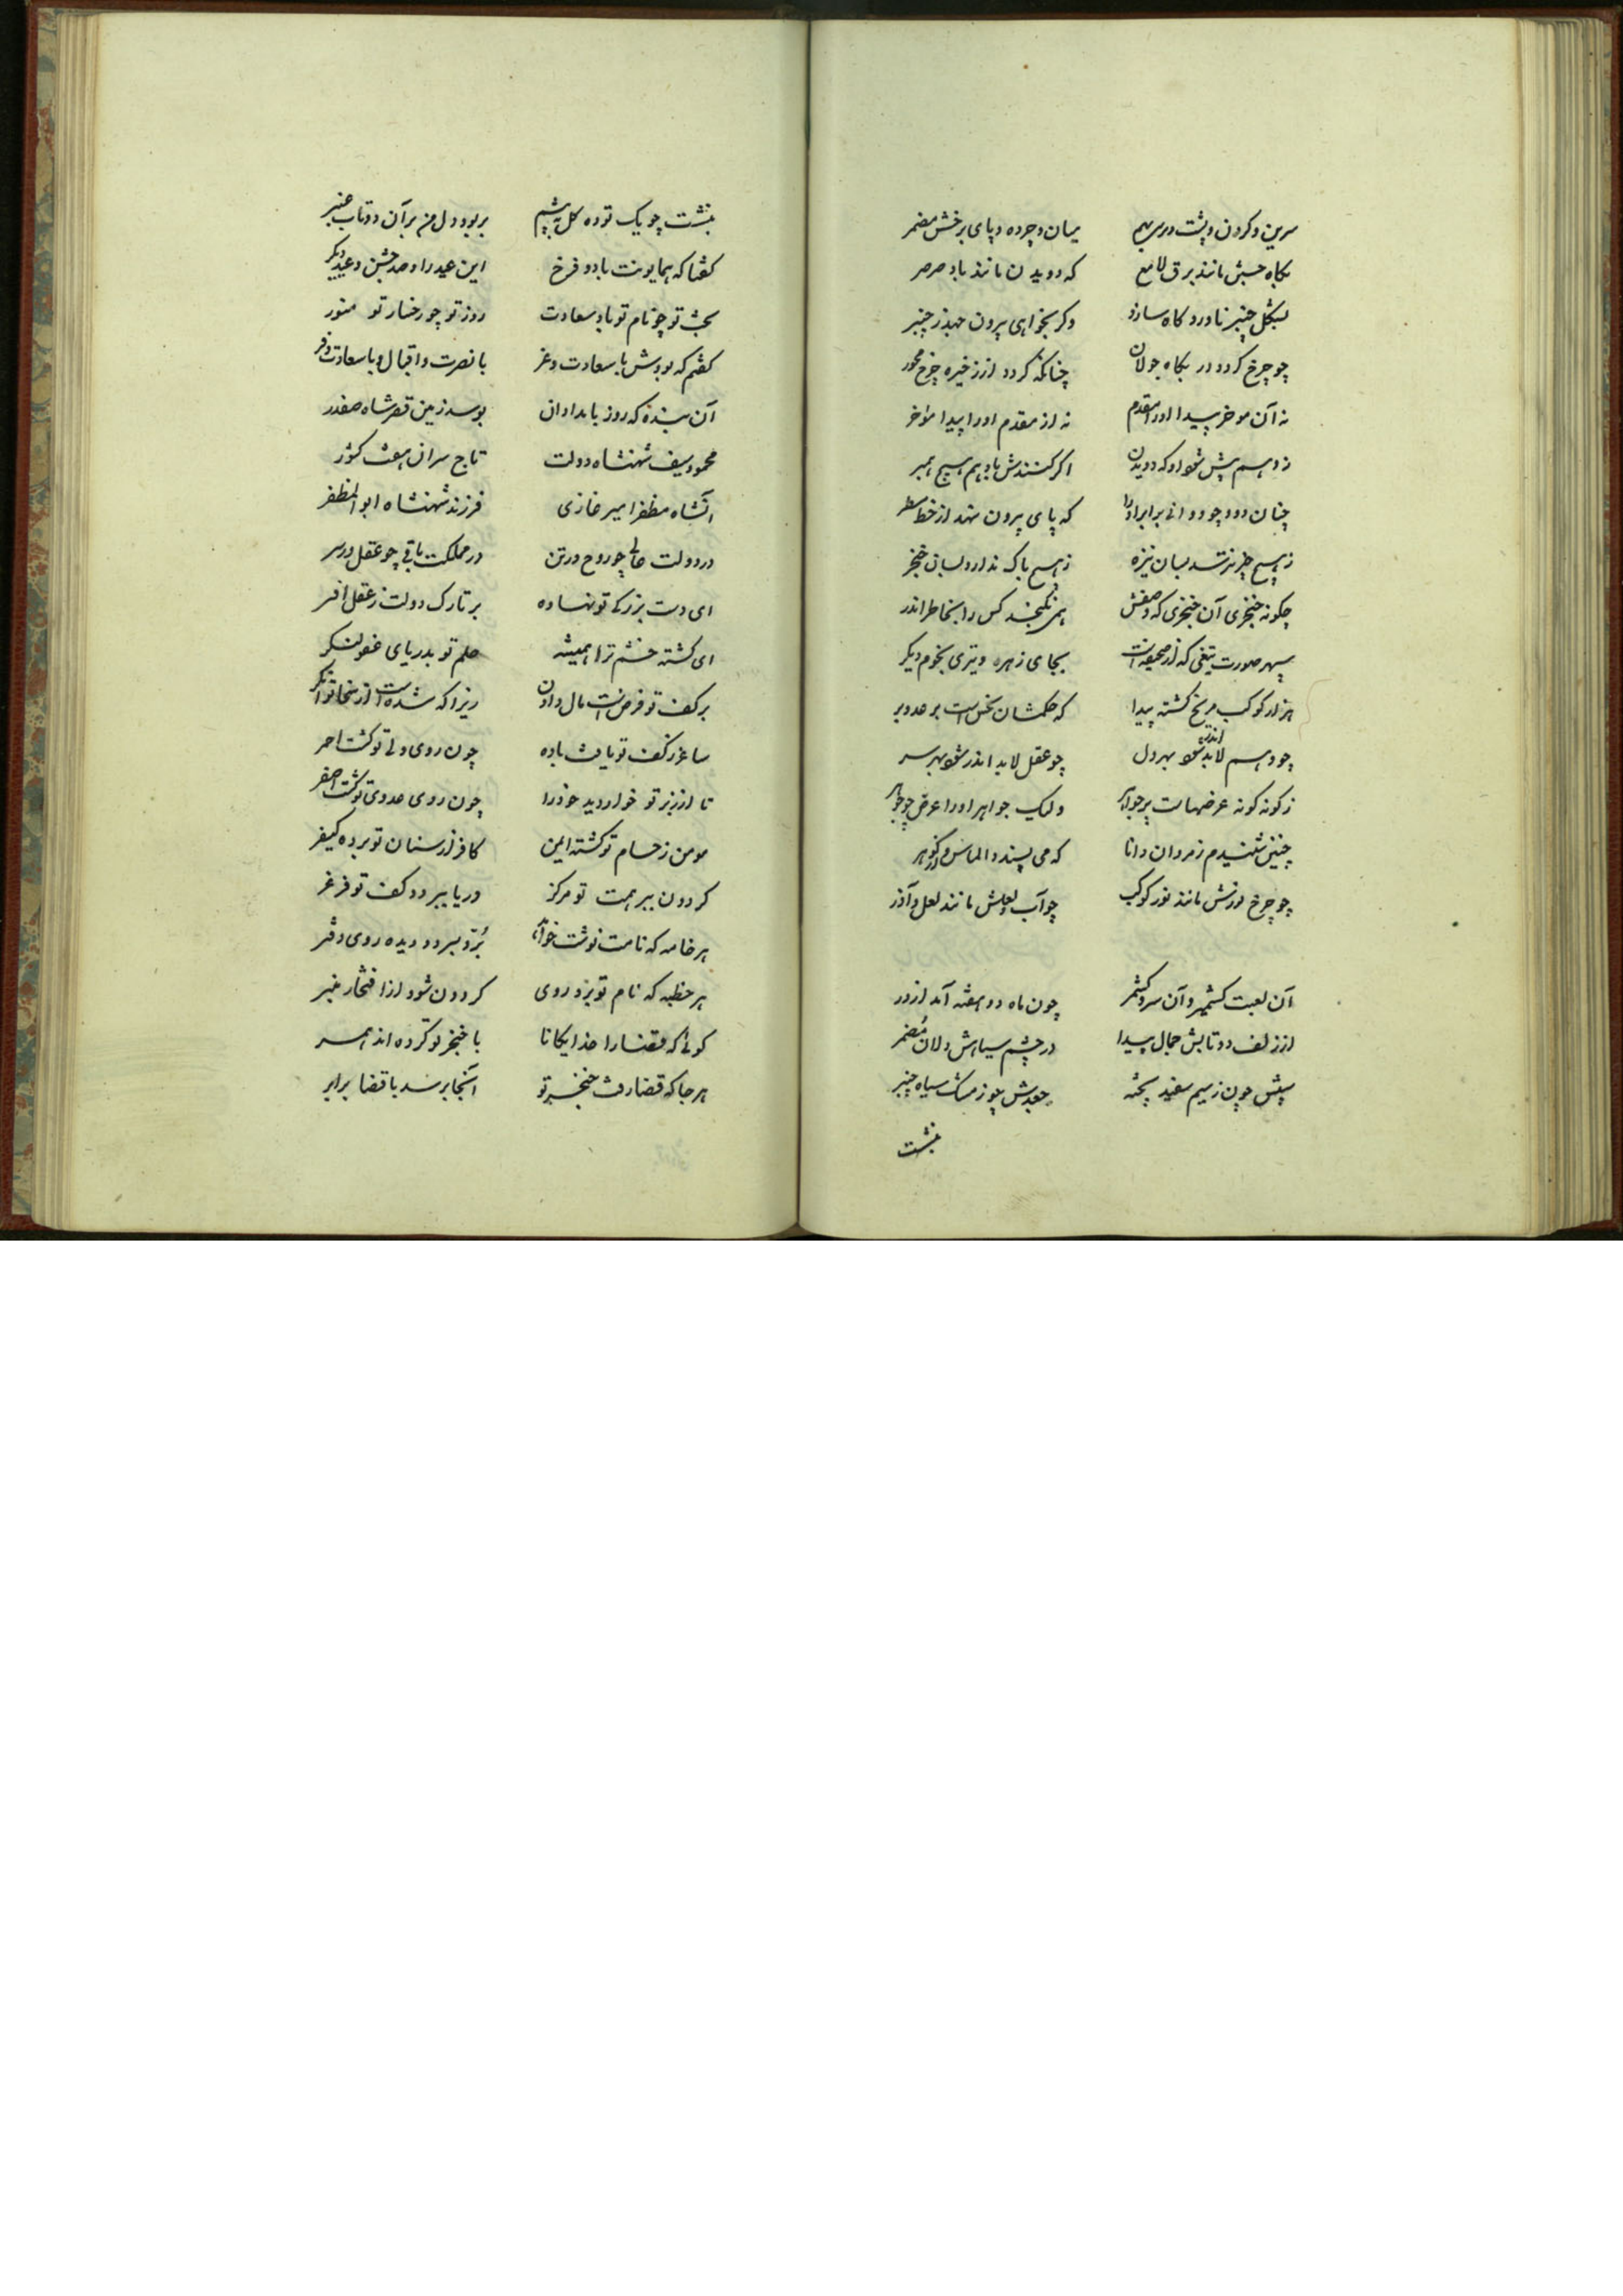 سرین و کردن و پشت و برش سیم میان و چرده و پای برخش مضمر
بکاه جنبش مانند برق لامع که دویدن مانند باد صرصر
بشکل چنبر ناورد کاه سازد وکر بخواهی بیرون جهد ز چنبر
چو چرخ کردد در بکاه جولان چنانکه کردد از زخیره چرخ محور
نه آن موخر پیدا اورا مقدم نه از مقدم اورا پیدا موخر
ز وهم پیش شود او که دویدن اکر کنندش با وهم هیچ همبر
چنان دود چو دوانی برابر اورا که پای بیرون ننهد از خط مسطر
ز هیچ چیز نترسد بسان نیزه ز هیچ باک ندارد بسان خنجر
چکونه خنجری آن خنجری که وصفش همی نکنجد کس را بخاطر اندر
سپهر صورت تیغی که از صحیفه اش بجای زهره و تیری نجوم دیکر
هزار کوکب مریخ کشته پیدا که حکمشان نحس است بر عدو بر
چو وهم لابد اندر شود بهر دل چو عقل لابد اندر شود بهر سر
ز کونه کونه عرضهاست پر جواهر ولیک جواهر اورا عرض چو جوهر
چنین شنیدم ز مردان دانا که می پسندد الماس و در کوهر
چو چرخ لونش مانند نور کوکب چو آب لونش مانند لعل و آذر
آن لعبت کشمیر و آن سرو کشمر چون ماه دو هفته آمد از در
از زلف دوتایش جمال پیدا در چشم سیاهش دلان مضمر
پیش چون ز سیم سفید پخته جعدش چو ز مشک سیاه چنبر
بنشست
بنشست چو یک توده کل به پیشم بربود دل من بر آن دو تاب عنبر
کفتا که همایونت باد و فرخ این عید را و صد جشن و عید دیکر
بخت تو چو نام تو با سعادت روز تو چو رخسار تو منور
کفتم که بودش با سعادت و عز با نصرت و اقبال و با سعادت و فر
آن بنده که روز بامدادان بوسد زمین قصر شاه صفدر
محمود سیف شهنشاه دولت تاج سران هفت کشور
آنشاه مظفر امیر غازی فرزند شهنشاه ابوالمظفر
در دولت عالی چو روح در تن در مملکت باقی چو عقل در سر
ای دست بزرکی تو نهاده بر تارک دولت ز عقل افسر
ای کشته خشم ترا همیشه حلم تو بدریای عفو لنکر
بر کف تو فرض است مال دادن زیرا که شده است از سخا توانکر
ساغر ز کف تو یافت باده چون روی ولی تو کشت احمر
تا از زبر تو خوار دید خود را چون روی عدوی تو کشت اصفر
مومن ز حسام تو کشته ایمن کافر از سنان تو برده کیفر
کردون ببر همت تو مرکز دریا ببر دو کف تو فرغر
هر خامه که نامت نوشت خواهد بزد ببر دو دیده روی دفتر
هر خطبه که نام تو بزد روی کردون شود از افتخار منبر
کوئی که قضا را خدایکانا با خنجر تو کرده اند همسر
هر جا که قضا رفت خنجر تو آنجا برسد با قضا برابر